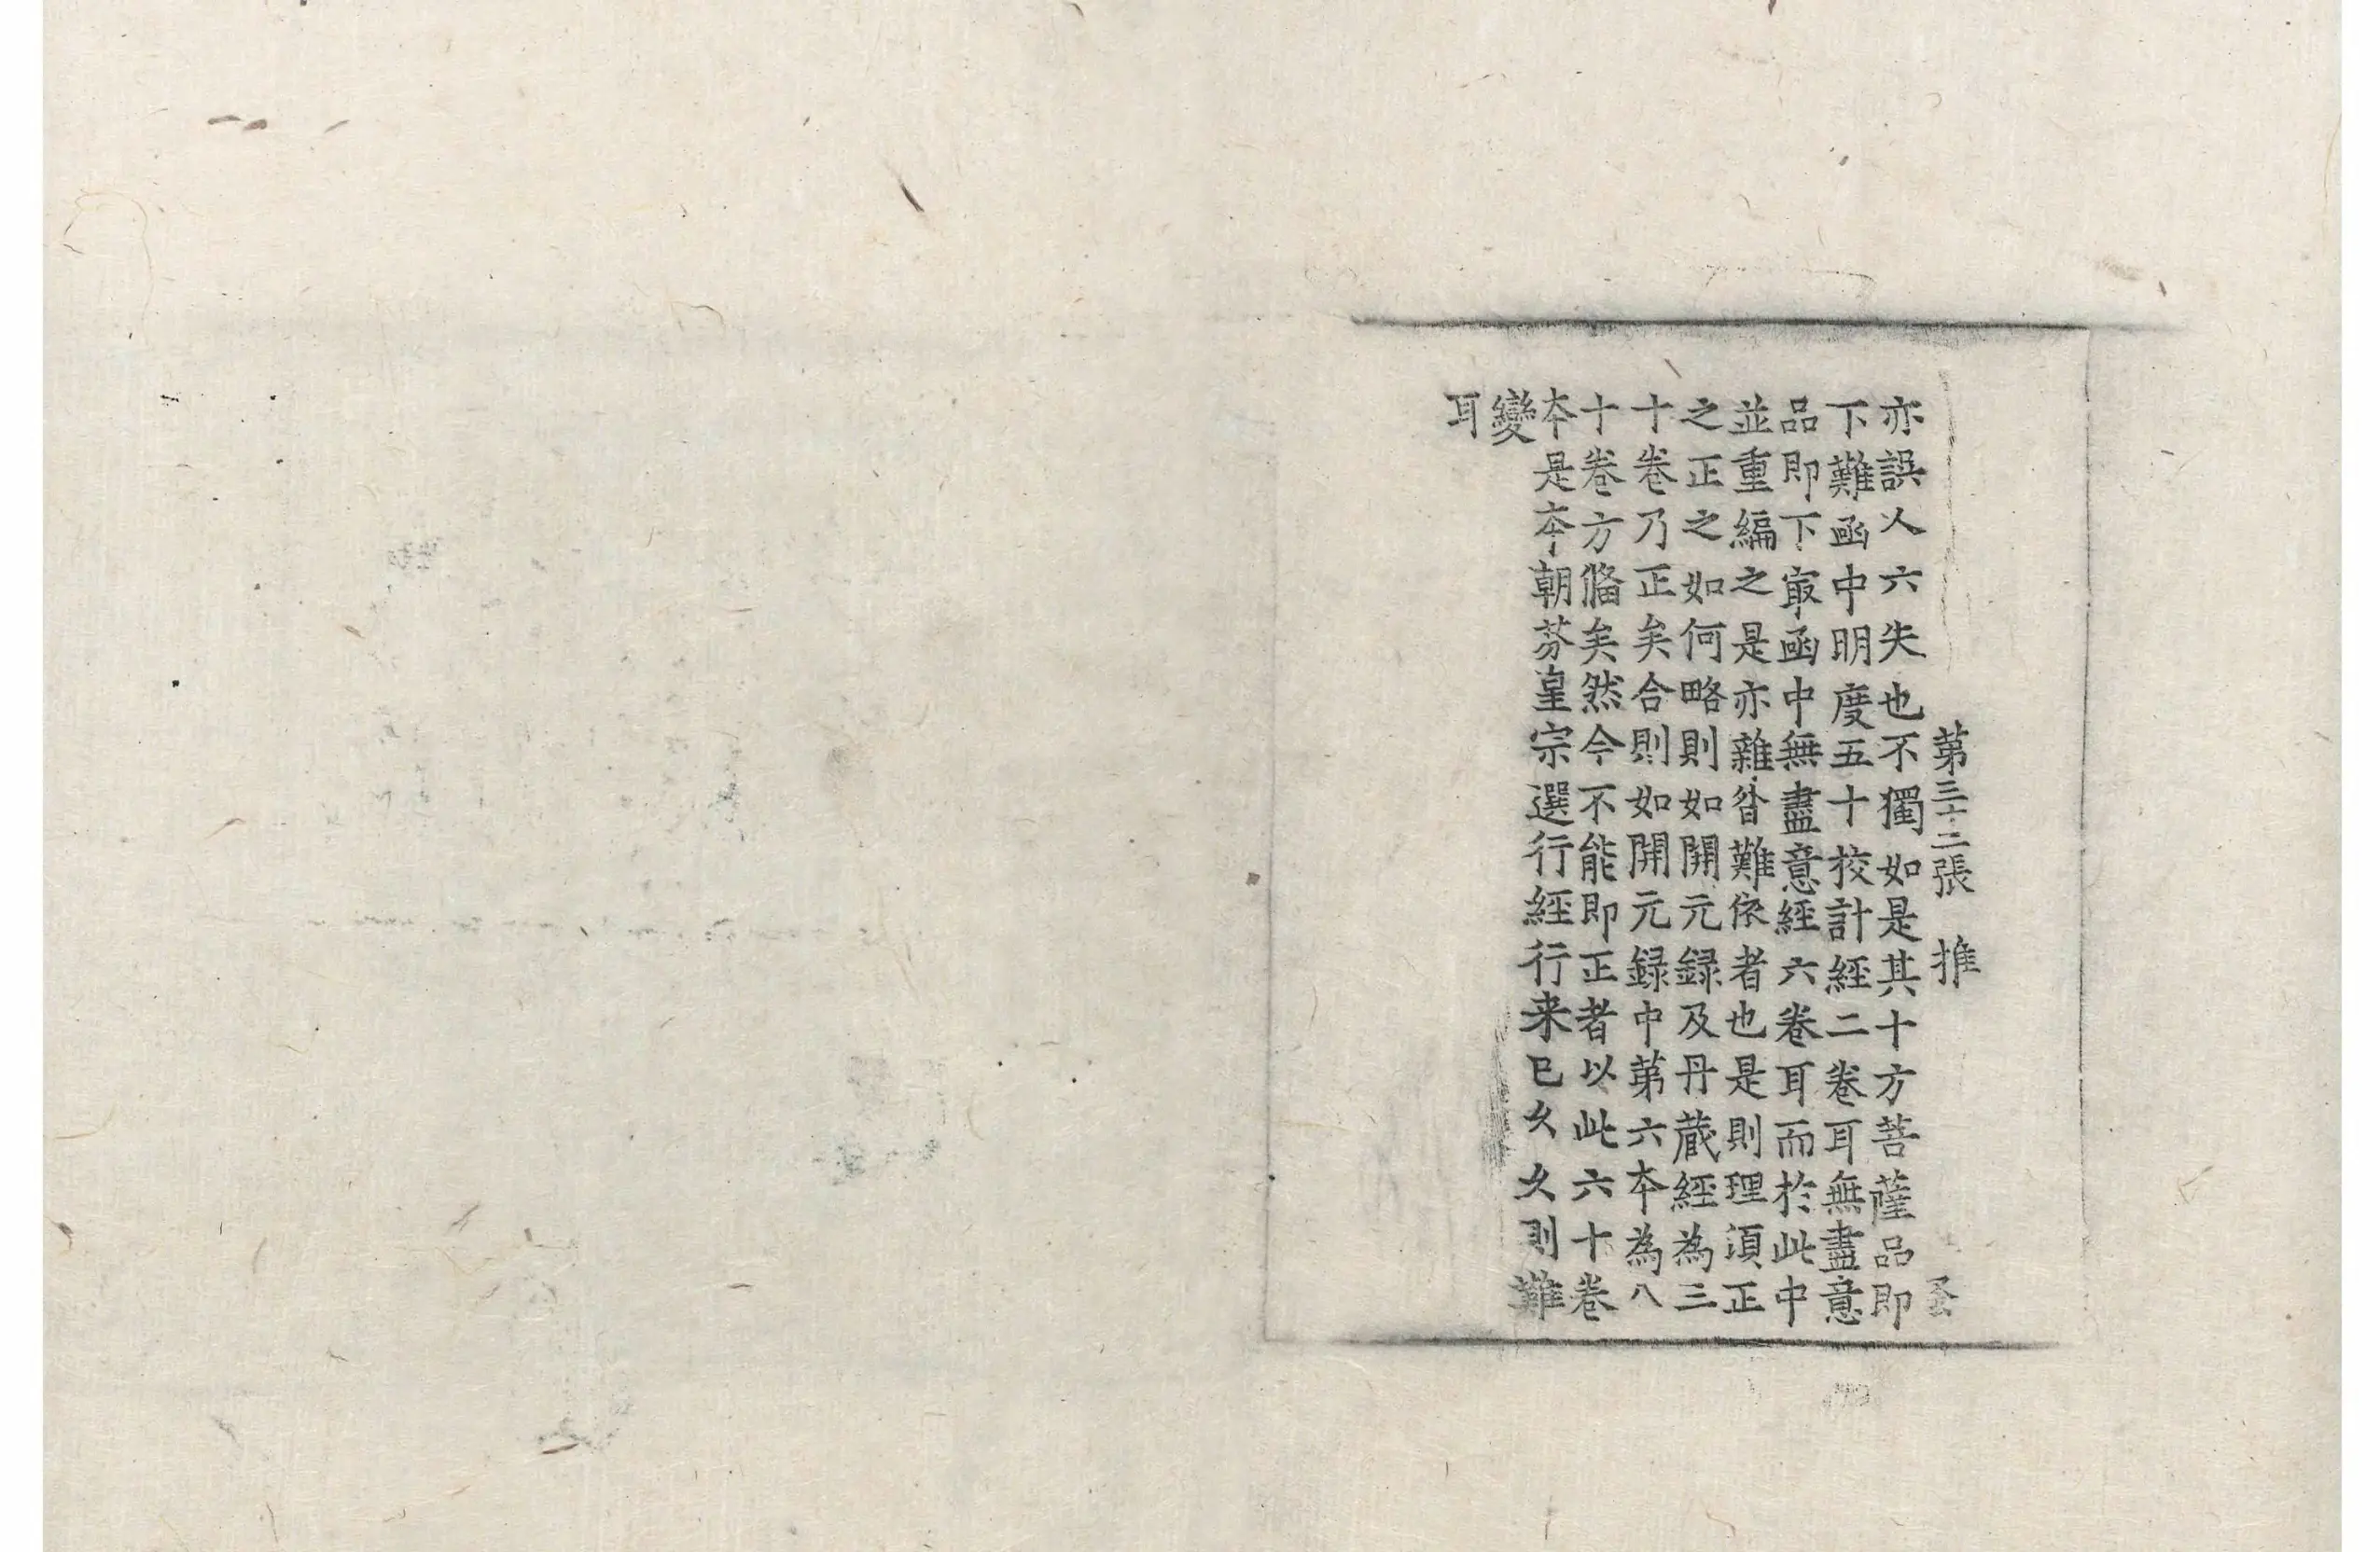 第三十二張 推
亦誤人六失也不獨如是其十方菩薩品即
下難函中明度五十挍計經二卷耳無盡意
品即下㝡函中無盡意經六卷耳而於此中
並重編之是亦雜㳫難依者也是則理須正
之正之如何略則如開元録及丹藏經為三
十卷乃正矣合則如開元録中第六夲為八
十卷方偹矣然今不能即正者以此六十卷
夲是夲朝芬皇宗選行經行来已久久則難
變
耳